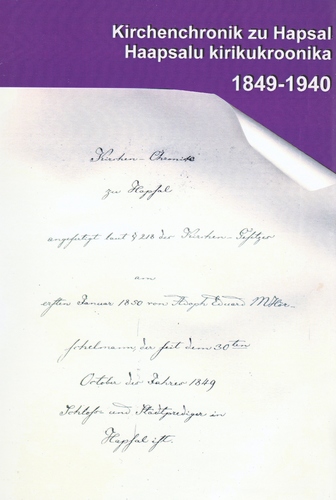 Kirchenchronik zu Hapsal
Haapsalu kirikukroonika
1849-1940
Kirchen-Chronik
zu Hapsal
angefertigt laut § 218 des Kirchen-Gesetzes
am
ersten Januar 1850 von Adoph Eduard
der seit dem 30ten
October des Jahres 1849
Schloss- und Stadtprediger in
Hapsal ist.